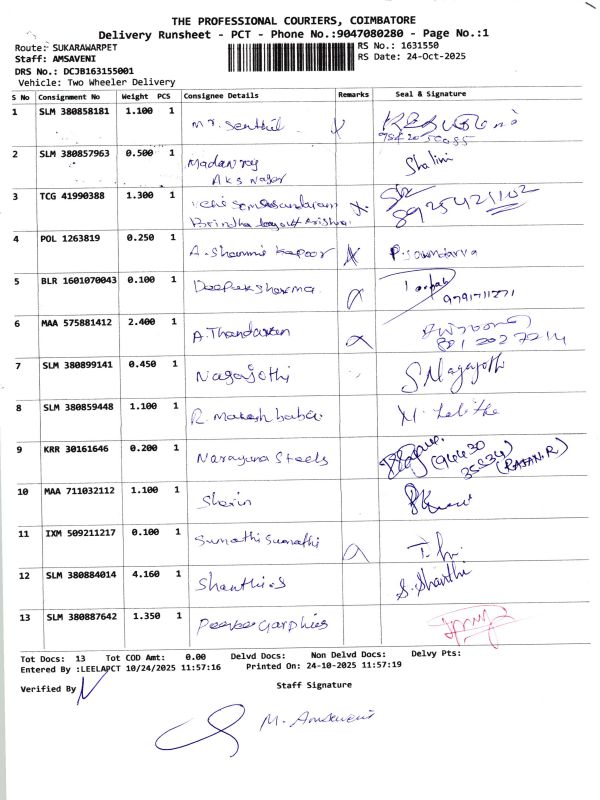 THE PROFESSIONAL COURIERS, COIMBATORE
Delivery Runsheet - PCT - Phone No.:9047080280 - Page No.:1
Route: SUKARAWARPET
RS No.: 1631550
Staff: AMSAVENI
RS Date: 24-Oct-2025
DRS No.: DCJB163155001
Vehicle: Two Wheeler Delivery
S No Consignment No Weight PCS Consignee Details Remarks Seal & Signature
1 SLM 380858181 1.100 1 Mr. Senthil
2 SLM 380857963 0.500 1 Madanraj Shalini
AKS Nagar
3 TCG 41990388 1.300 1 8925421102
Brindha layout
4 POL 1263819 0.250 1 A. Shammi Kapoor P. Soundarya
5 BLR 1601070043 0.100 1 Deepak sharma
9791711271
6 MAA 575881412 2.400 1 A. Thandavan
7 SLM 380899141 0.450 1 Nagajothi S Nagajothi
8 SLM 380859448 1.100 1 R Makesh babu M. Lalitha
9 KRR 30161646 0.200 1 Narayana Steels (94430
35534) (RAJAN.R)
10 MAA 711032112 1.100 1 Sherin
11 IXM 509211217 0.100 1 Sumathi Sumathi
12 SLM 380884014 4.160 1 Shanthi.S S. Shanthi
13 SLM 380887642 1.350 1
Tot Docs: 13 Tot COD Amt: 0.00 Delvd Docs: Non Delvd Docs: Delvy Pts:
Entered By :LEELAPCT 10/24/2025 11:57:16 Printed On: 24-10-2025 11:57:19
Verified By Staff Signature
M. Amsaveni